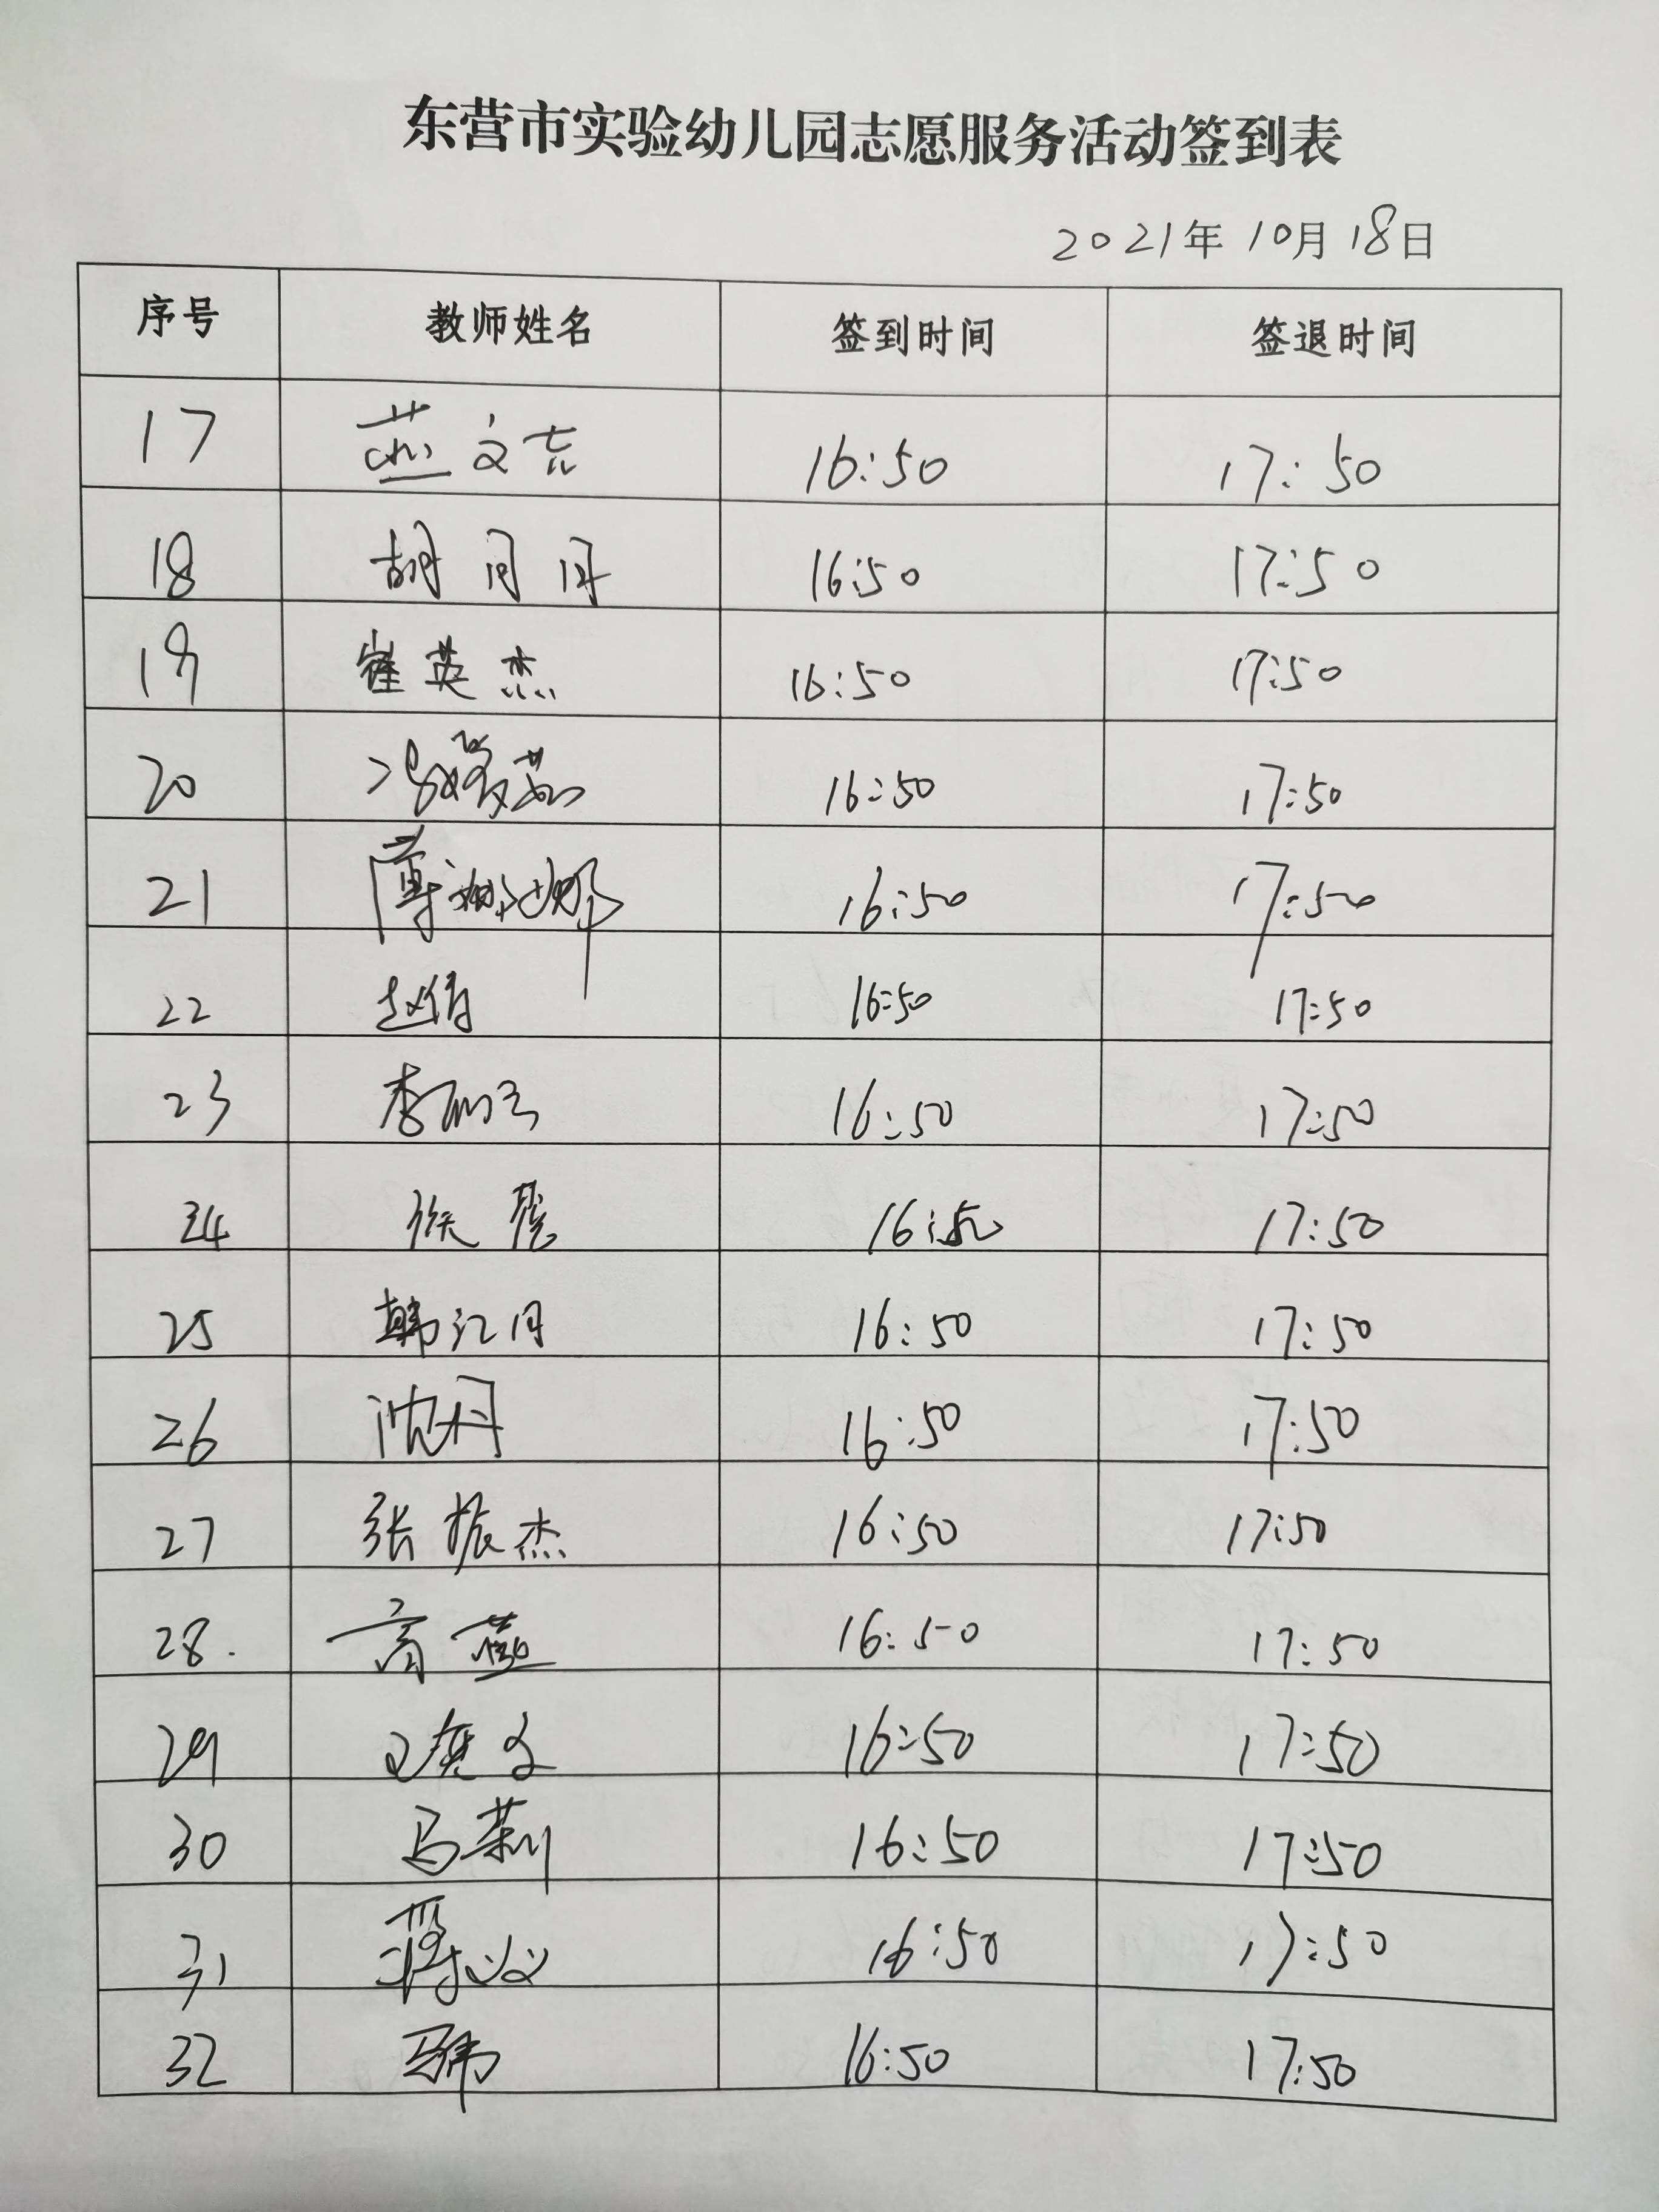 东营市实验幼儿园志愿服务活动签到表
2021年 10月 18日
序号 教师姓名 签到时间 签退时间
17 燕文志 16:50 17:50
18 胡月月 16:50 17:50
19 崔英杰 16:50 17:50
20 冯媛茹 16:50 17:50
21 薄娜娜 16:50 17:50
22 赵倩 16:50 17:50
23 李丽云 16:50 17:50
24 16:50 17:50
25 韩江月 16:50 17:50
26 沈丹 16:50 17:50
27 张振杰 16:50 17:50
28. 高燕 16:50 17:50
29 16:50 17:50
30 马莉 16:50 17:50
31 蒋义 16:50 17:50
32 马伟 16:50 17:50